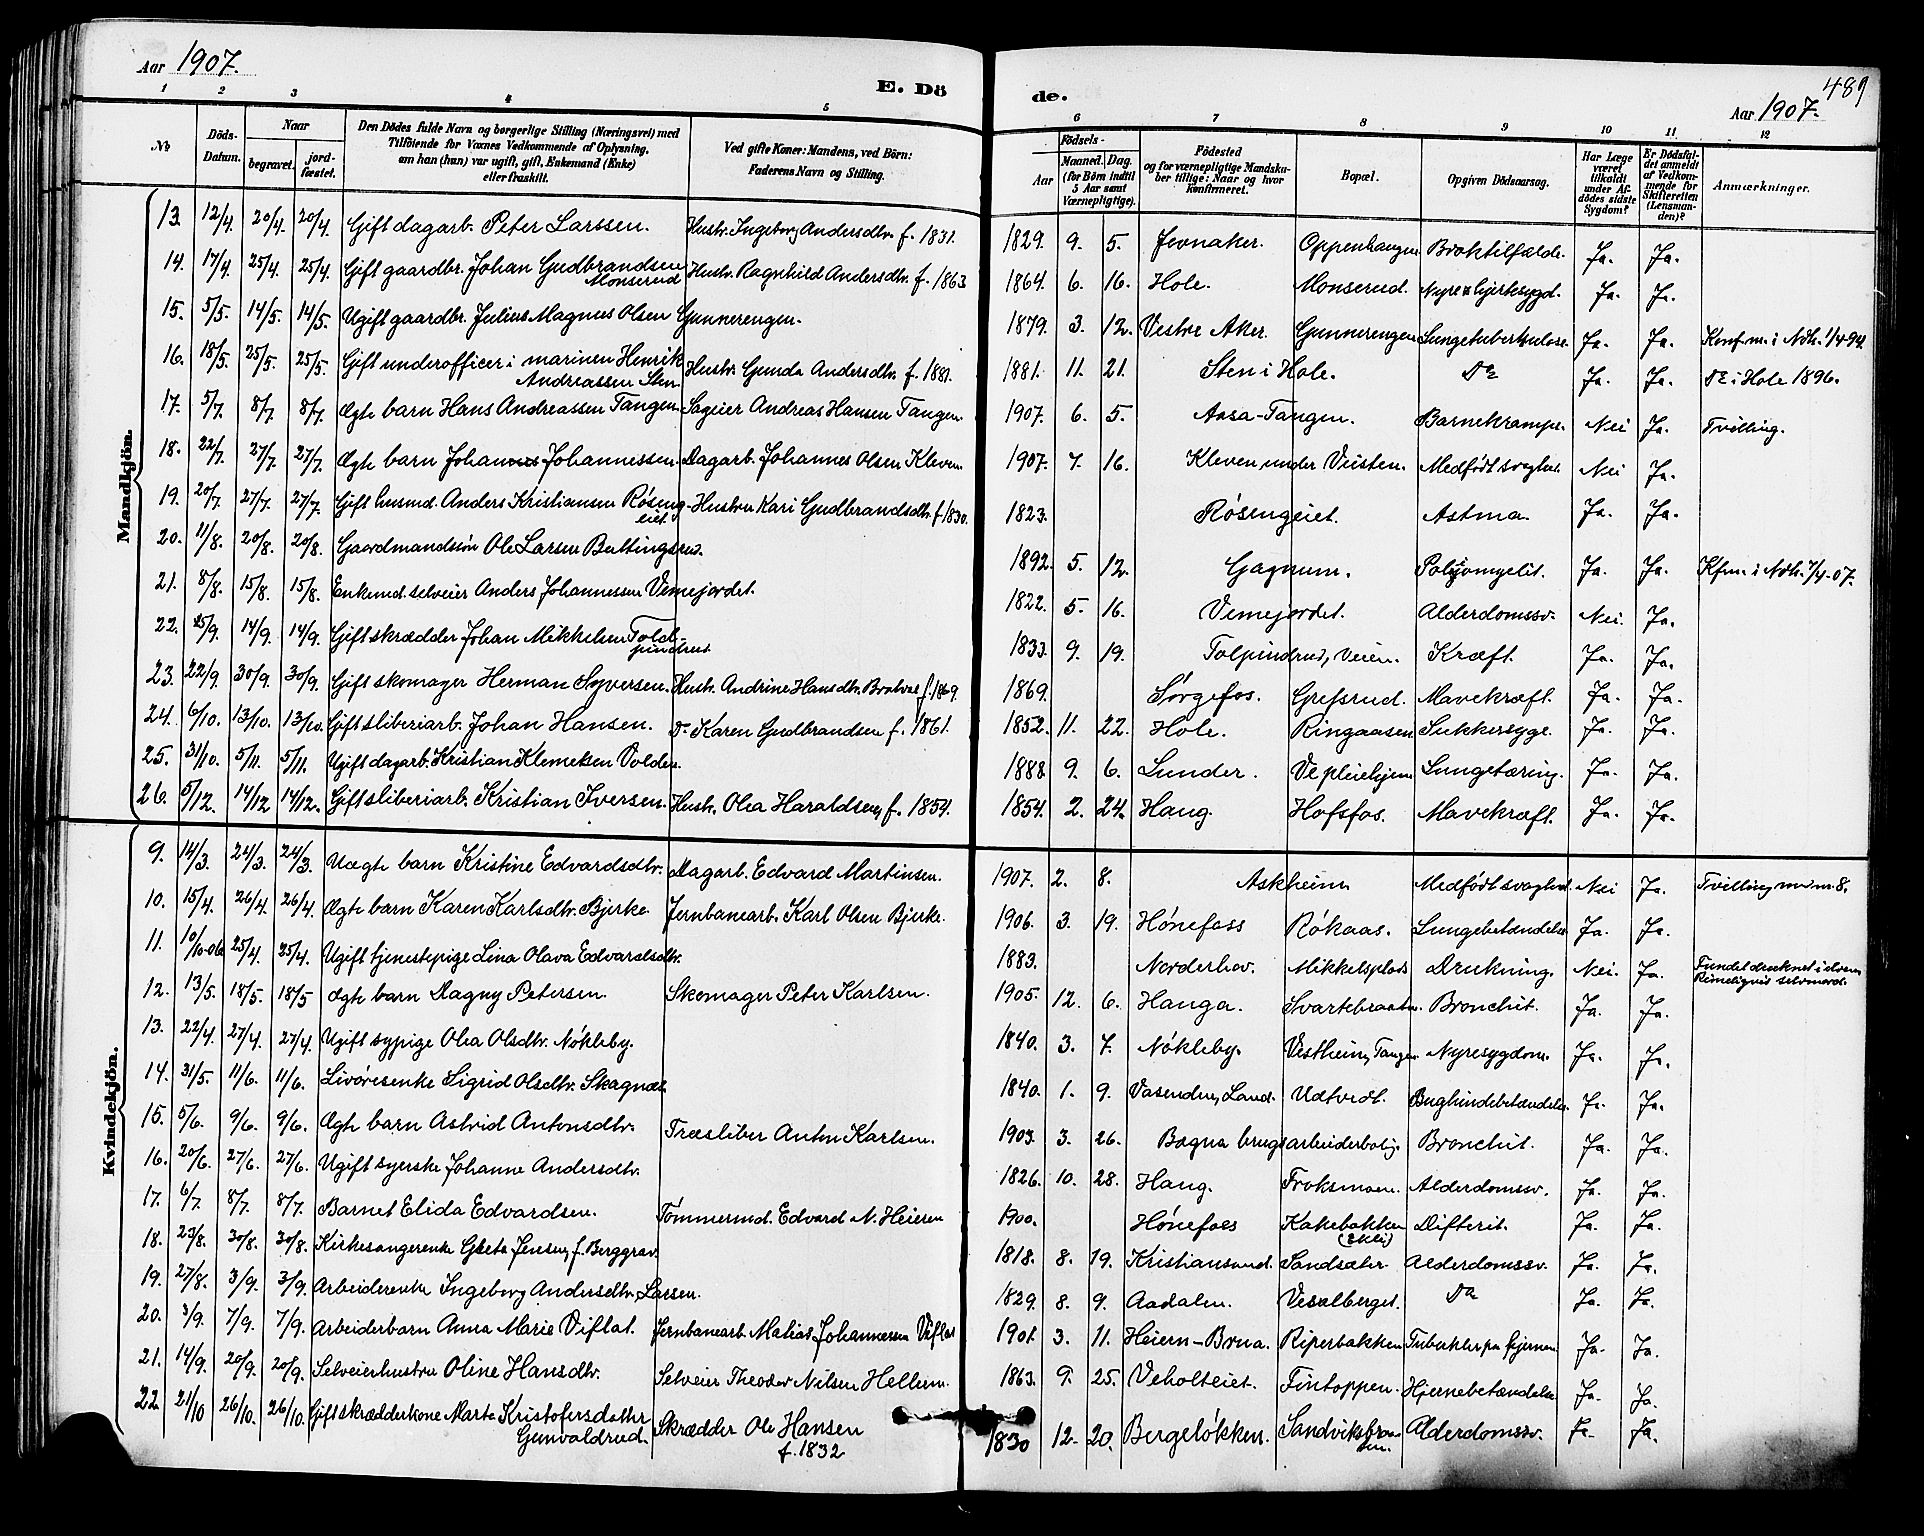 Aar 1907.
E. Dö
de.
489
Aar 1907.
1 2 3 4 5 6 7 8 9 10 11 12
No
Döds-Datum.
Naar
begravet.
jord-fæstet.
Den Dödes fulde Navn og borgerlige Stilling (Næringsvei) med
Tilföiende for Voxnes Vedkommende af Oplysning,
om han (hun) var ugift, gift, Enkemand (Enke)
eller fraskilt.
Ved gifte Koner: Mandens, ved Börn:
Faderens Navn og Stilling.
Födsels-
Aar
Maaned. Dag.
(for Börn indtil
5 Aar samt
Værnepligtige).
Födested
og for værnepligtige Mandska-
ber tillige: Naar og hvor
Konfirmeret.
Bopæl.
Opgiven Dödsaarsag.
Har Læge
været
tilkaldt
under Af-
dödes sidste
Sygdom?
Er Dödsfal-
det anmeldt
af Vedkom-
mende for
Skifteretten
(Lensman-
den)?
Anmærkninger.
Mandkjön.
13. 12/4. 20/4. 20/4. Gift dagarb. Peter Larssen. Hustr. Ingeborg Andersdtr. f. 1831. 1829. 9. 5. Jevnaker. Oppenhaugen Broktilfælde. Ja. Ja.
14. 17/4. 25/4. 25/4. Gift gaardbr. Johan Gudbrandsen Monserud Hustr. Ragnhild Andersdtr. f. 1863 1864. 6. 16. Hole. Monserud. Nyre & Hjertesygd. Ja. Ja.
15. 5/5. 14/5. 14/5. Ugift gaardbr. Julius Magnus Olsen Gunnerengen. 1879. 3. 12. Vestre Aker. Gunnerengen Lungetuberkulose. Ja. Ja. Konf. m. i Ndh. 1/4-94.
16. 18/5. 25/5. 25/5. Gift underofficer i marinen Henrik Andreassen Sten. Hustr. Gunda Andersdtr. f. 1881. 1881. 11. 21. Sten i Hole. Do Ja. Ja. Do i Hole 1896.
17. 5/7. 8/7. 8/7. Ægte barn Hans Andreassen Tangen. Sageier Andreas Hansen Tangen. 1907. 6. 5. Aasa-Tangen. Barnekrampe. Nei Ja. Tvilling.
18. 22/7. 27/7. 27/7. Ægte barn Johannes Johannessen. Dagarb. Johannes Olsen Kleven. 1907. 7. 16. Kleven under Veisten. Medfödt svaghet Nei Ja.
19. 20/7 27/7. 27/7. Gift husmd. Anders Kristiansen Röseng-eiet. Hustru Kari Gudbrandsdtr. f. 1830. 1823. Rösengeiet. Astma. Ja. Ja.
20. 11/8. 20/8. 20/8. Gaardmandssön Ole Larsen Buttingsrud. 1892. 5. 12. Gagnum. Poliomyelit. Ja. Ja. Kfm. i Ndh. 7/4-07.
21. 8/8. 15/8. 15/8. Enkemd. selveier Anders Johannessen Vemejordet. 1822. 5. 16. Vemejordet. Alderdomssv. Nei. Ja.
22. 14/9. 14/9. Gift skrædder Johan Mikkelsen Told-pindrud. 1833. 9. 19. Tolpinrud, Veien. Kræft. Ja. Ja.
23. 22/9. 30/9. 30/9. Gift skomager Herman Syversen. Hustr. Andrine Hansdtr. Bratvee f. 1869. 1869. Sörgefos. Grefsrud. Mavekræft. Ja. Ja.
24. 6/10. 13/10. 13/10. Gift sliberiarb. Johan Hansen. Do Karen Gudbrandsen f. 1861. 1852. 11. 22. Hole. Ringaasen Sukkersyge. Ja. Ja.
25. 31/10. 5/11. 5/11. Ugift dagarb. Kristian Klemetsen Volden. 1888. 9. 6. Lunder. Ve pleiehjem Lungetæring. Ja. Ja.
26. 5/12. 14/12 14/12. Gift sliberiarb. Kristian Iversen. Hustr. Olea Haraldsen, f. 1854. 1854. 2. 24. Haug. Hofsfos. Mavekræft. Ja. Ja.
Kvindekjön.
9. 14/3. 24/3. 24/3. Uægte barn Kristine Edvardsdtr. Dagarb. Edvard Martinsen. 1907. 2. 8. Askheim Medfödt svaghed Nei Ja. Tvilling med m. 8.
10. 15/4. 26/4. 26/4. Ægte barn Karen Karlsdtr. Bjerke Jernbanearb. Karl Olsen Bjerke. 1906. 3. 19. Hönefoss Rökaas. Lungebetændelse Ja. Ja.
11. 10/10-06 25/4. 25/4. Ugift tjenestepige Lina Olava Edvardsdtr. 1883. Norderhov. Mikkelsplads Drukning. Nei. Ja. Fundet druknet i elven. Rimeligvis selvmord.
12. 13/5. 18/5. 18/5 Ægte barn Dagny Petersen. Skomager Peter Karlsen. 1905. 12. 6. Hauga. Svartebraaten. Bronchit. Ja. Ja.
13. 22/4. 27/4. 27/4. Ugift sypige Olea Olsdtr. Nökleby. 1840. 3. 7. Nökleby. Vestheim, Tangen Nyresygdom. Ja. Ja.
14. 31/5. 11/6. 11/6. Livöresenke Sigrid Olsdtr. Skagnæs. 1840. 1. 9. Vasenden, Land. Udtvedt. Bughindebetændelse Ja. Ja.
15. 5/6. 9/6. 9/6. Ægte barn Astrid Antonsdtr. Træsliber Anton Karlsen. 1903. 3. 26. Bægna brugs arbeiderbolig. Bronchit. Ja. Ja.
16. 20/6. 27/6. 27/6. Ugift syerske Johanne Andersdtr. 1826. 10. 28. Haug. Froksmoen. Alderdomssv. Ja. Ja.
17. 6/7. 8/7. 8/7. Barnet Elida Edvardsen. Tömmermd. Edvard N. Heieren 1900. Hönefoss Kakebakken (Ekli) Difterit. Ja. Ja.
18. 23/8. 30/8. 30/8. Kirkesangerenke Grete Jensen, f. Berggrav. 1818. 8. 19. Kristiansund. Sandsæter Alderdomssv. Ja. Ja.
19. 27/8. 3/9. 3/9. Arbeiderenke Ingeborg Andersdtr. Larsen. 1829. 8. 9. Aadalen. Veselberget. Do Ja. Ja.
20. 3/9. 7/9. 7/9. Arbeiderbarn Anna Marie Viflat. Jernbanearb. Matias Johannessen Viflat 1901. 3. 11. Heiern-Brua. Riperbakken Tuberkler paa hjernen Ja. Ja.
21. 14/9. 20/9. 20/9. Selveierhustru Oline Hansdtr. Selveier Theodor Nilsen Hellum. 1863. 9. 25. Veholteiet. Fintoppen. Hjernebetændelse Ja. Ja.
22 21/10 26/10. 26/10. Gift skrædderkone Marte Kristofersdatter Gunvaldrud. Skrædder Ole Hansen f. 1832 1830 12. 20. Bergelökken. Sandviksbraaten. Alderdomssv. Ja. Ja.